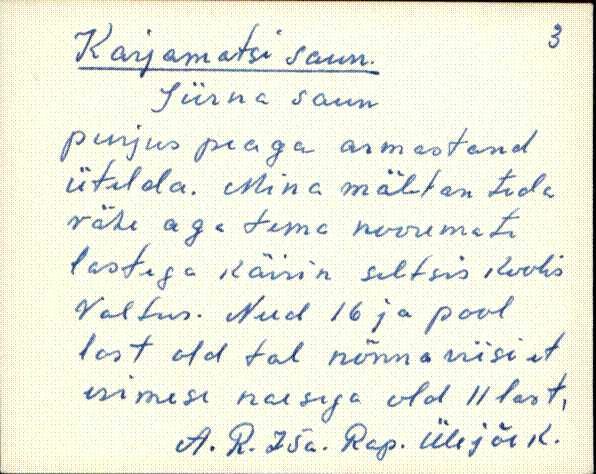 3
Karjamatsi saun.
Jürna saun
purjus peaga armastand
ütelda. Mina mäletan teda
vähe aga tema nooremate
lastega käisin seltsis koolis
Valtus. Neid 16 ja pool
last old tal nõnna viisi et
esimese naesega old 11 last,
A. R. Isa. Rap. Ülejõe k.